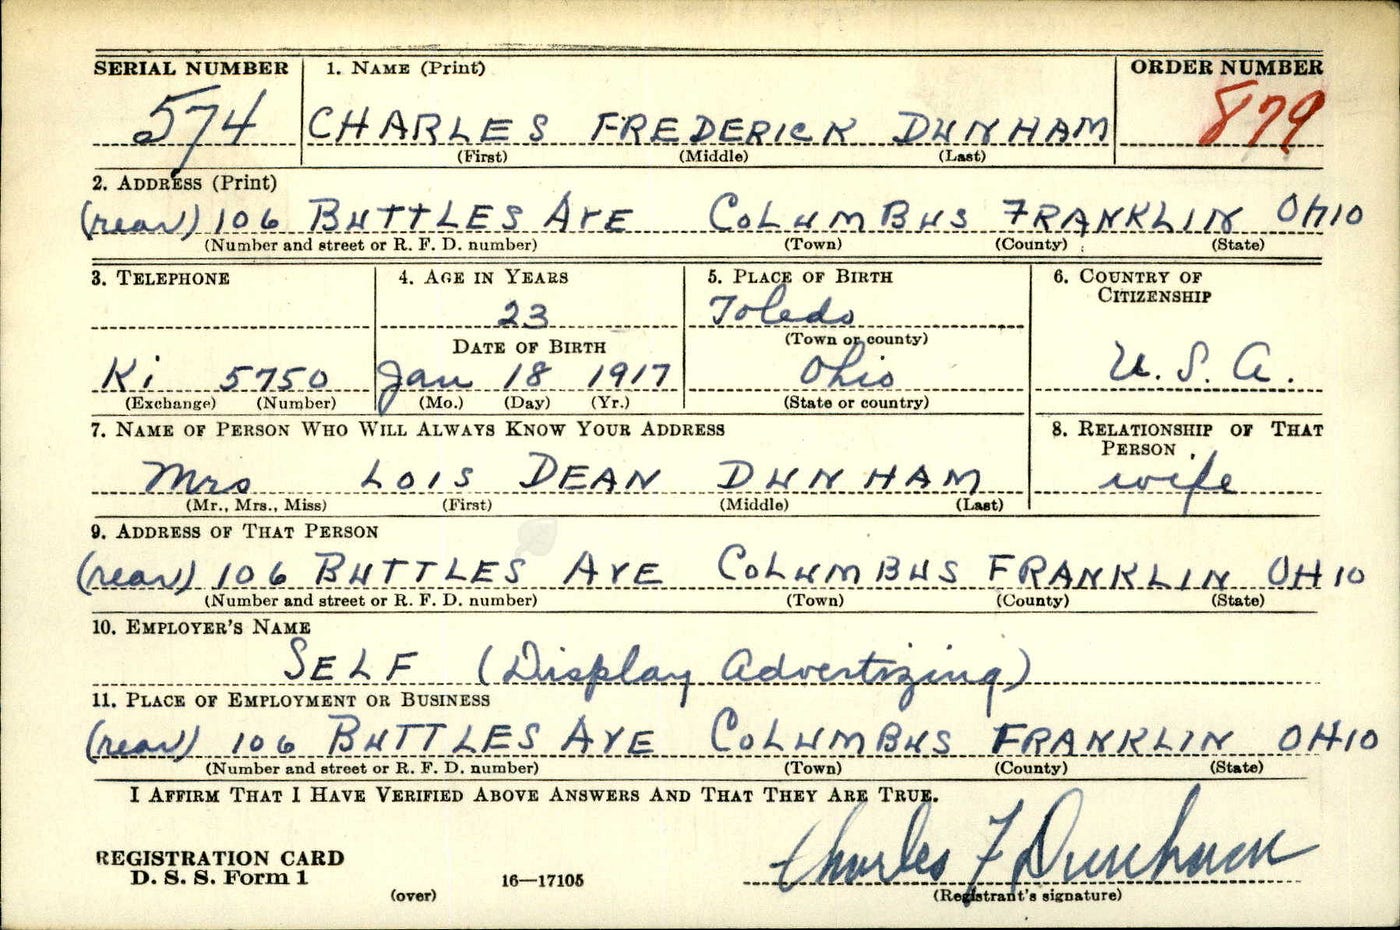 SERIAL NUMBER 1. NAME (Print) ORDER NUMBER
574 CHARLES FREDERICK DUNHAM 879
(First) (Middle) (Last)
2. ADDRESS (Print)
(rear) 106 BUTTLES AVE COLUMBUS FRANKLIN OHIO
(Number and street or R. F. D. number) (Town) (County) (State)
3. TELEPHONE 4. AGE IN YEARS 5. PLACE OF BIRTH 6. COUNTRY OF
CITIZENSHIP
23 Toledo
DATE OF BIRTH (Town or county)
Ki 5750 Jan 18 1917 Ohio U. S. A.
(Exchange) (Number) (Mo.) (Day) (Yr.) (State or country)
7. NAME OF PERSON WHO WILL ALWAYS KNOW YOUR ADDRESS 8. RELATIONSHIP OF THAT
PERSON
Mrs LOIS DEAN DUNHAM wife
(Mr., Mrs., Miss) (First) (Middle) (Last)
9. ADDRESS OF THAT PERSON
(rear) 106 BUTTLES AVE COLUMBUS FRANKLIN OHIO
(Number and street or R. F. D. number) (Town) (County) (State)
10. EMPLOYER'S NAME
SELF (Display Advertizing)
11. PLACE OF EMPLOYMENT OR BUSINESS
(rear) 106 BUTTLES AVE COLUMBUS FRANKLIN OHIO
(Number and street or R. F. D. number) (Town) (County) (State)
I AFFIRM THAT I HAVE VERIFIED ABOVE ANSWERS AND THAT THEY ARE TRUE.
REGISTRATION CARD
D. S. S. Form 1 Charles F Dunham
(over) 16—17105 (Registrant's signature)